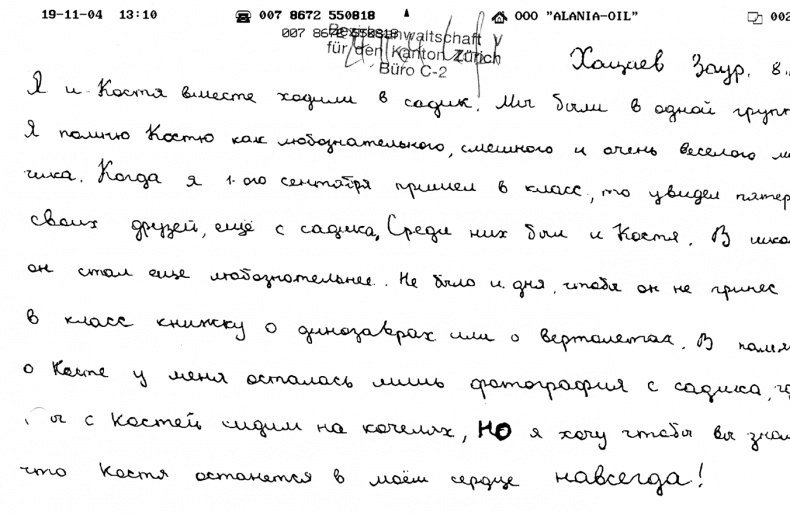 19-11-04 13:10 007 8672 550818 ООО "ALANIA-OIL" 002
007 8672 550818
Bezirksanwaltschaft
für den Kanton Zürich
Büro C-2
Хациев Заур. 8.
Я и Костя вместе ходили в садик. Мы были в одной групп
Я помню Костю как любознательного, смешного и очень веселого м
чика. Когда я 1-ого сентября пришел в класс, то увидел пятер
своих друзей, ещё с садика. Среди них был и Костя. В шко
он стал еще любознательнее. Не было и дня, чтобы он не принес
в класс книжку о динозаврах или о вертолетах. В памя
о Косте у меня осталась лишь фотография с садика, г
ы с Костей сидим на качелях, НО я хочу чтобы вы зна
что Костя останется в моём сердце навсегда!